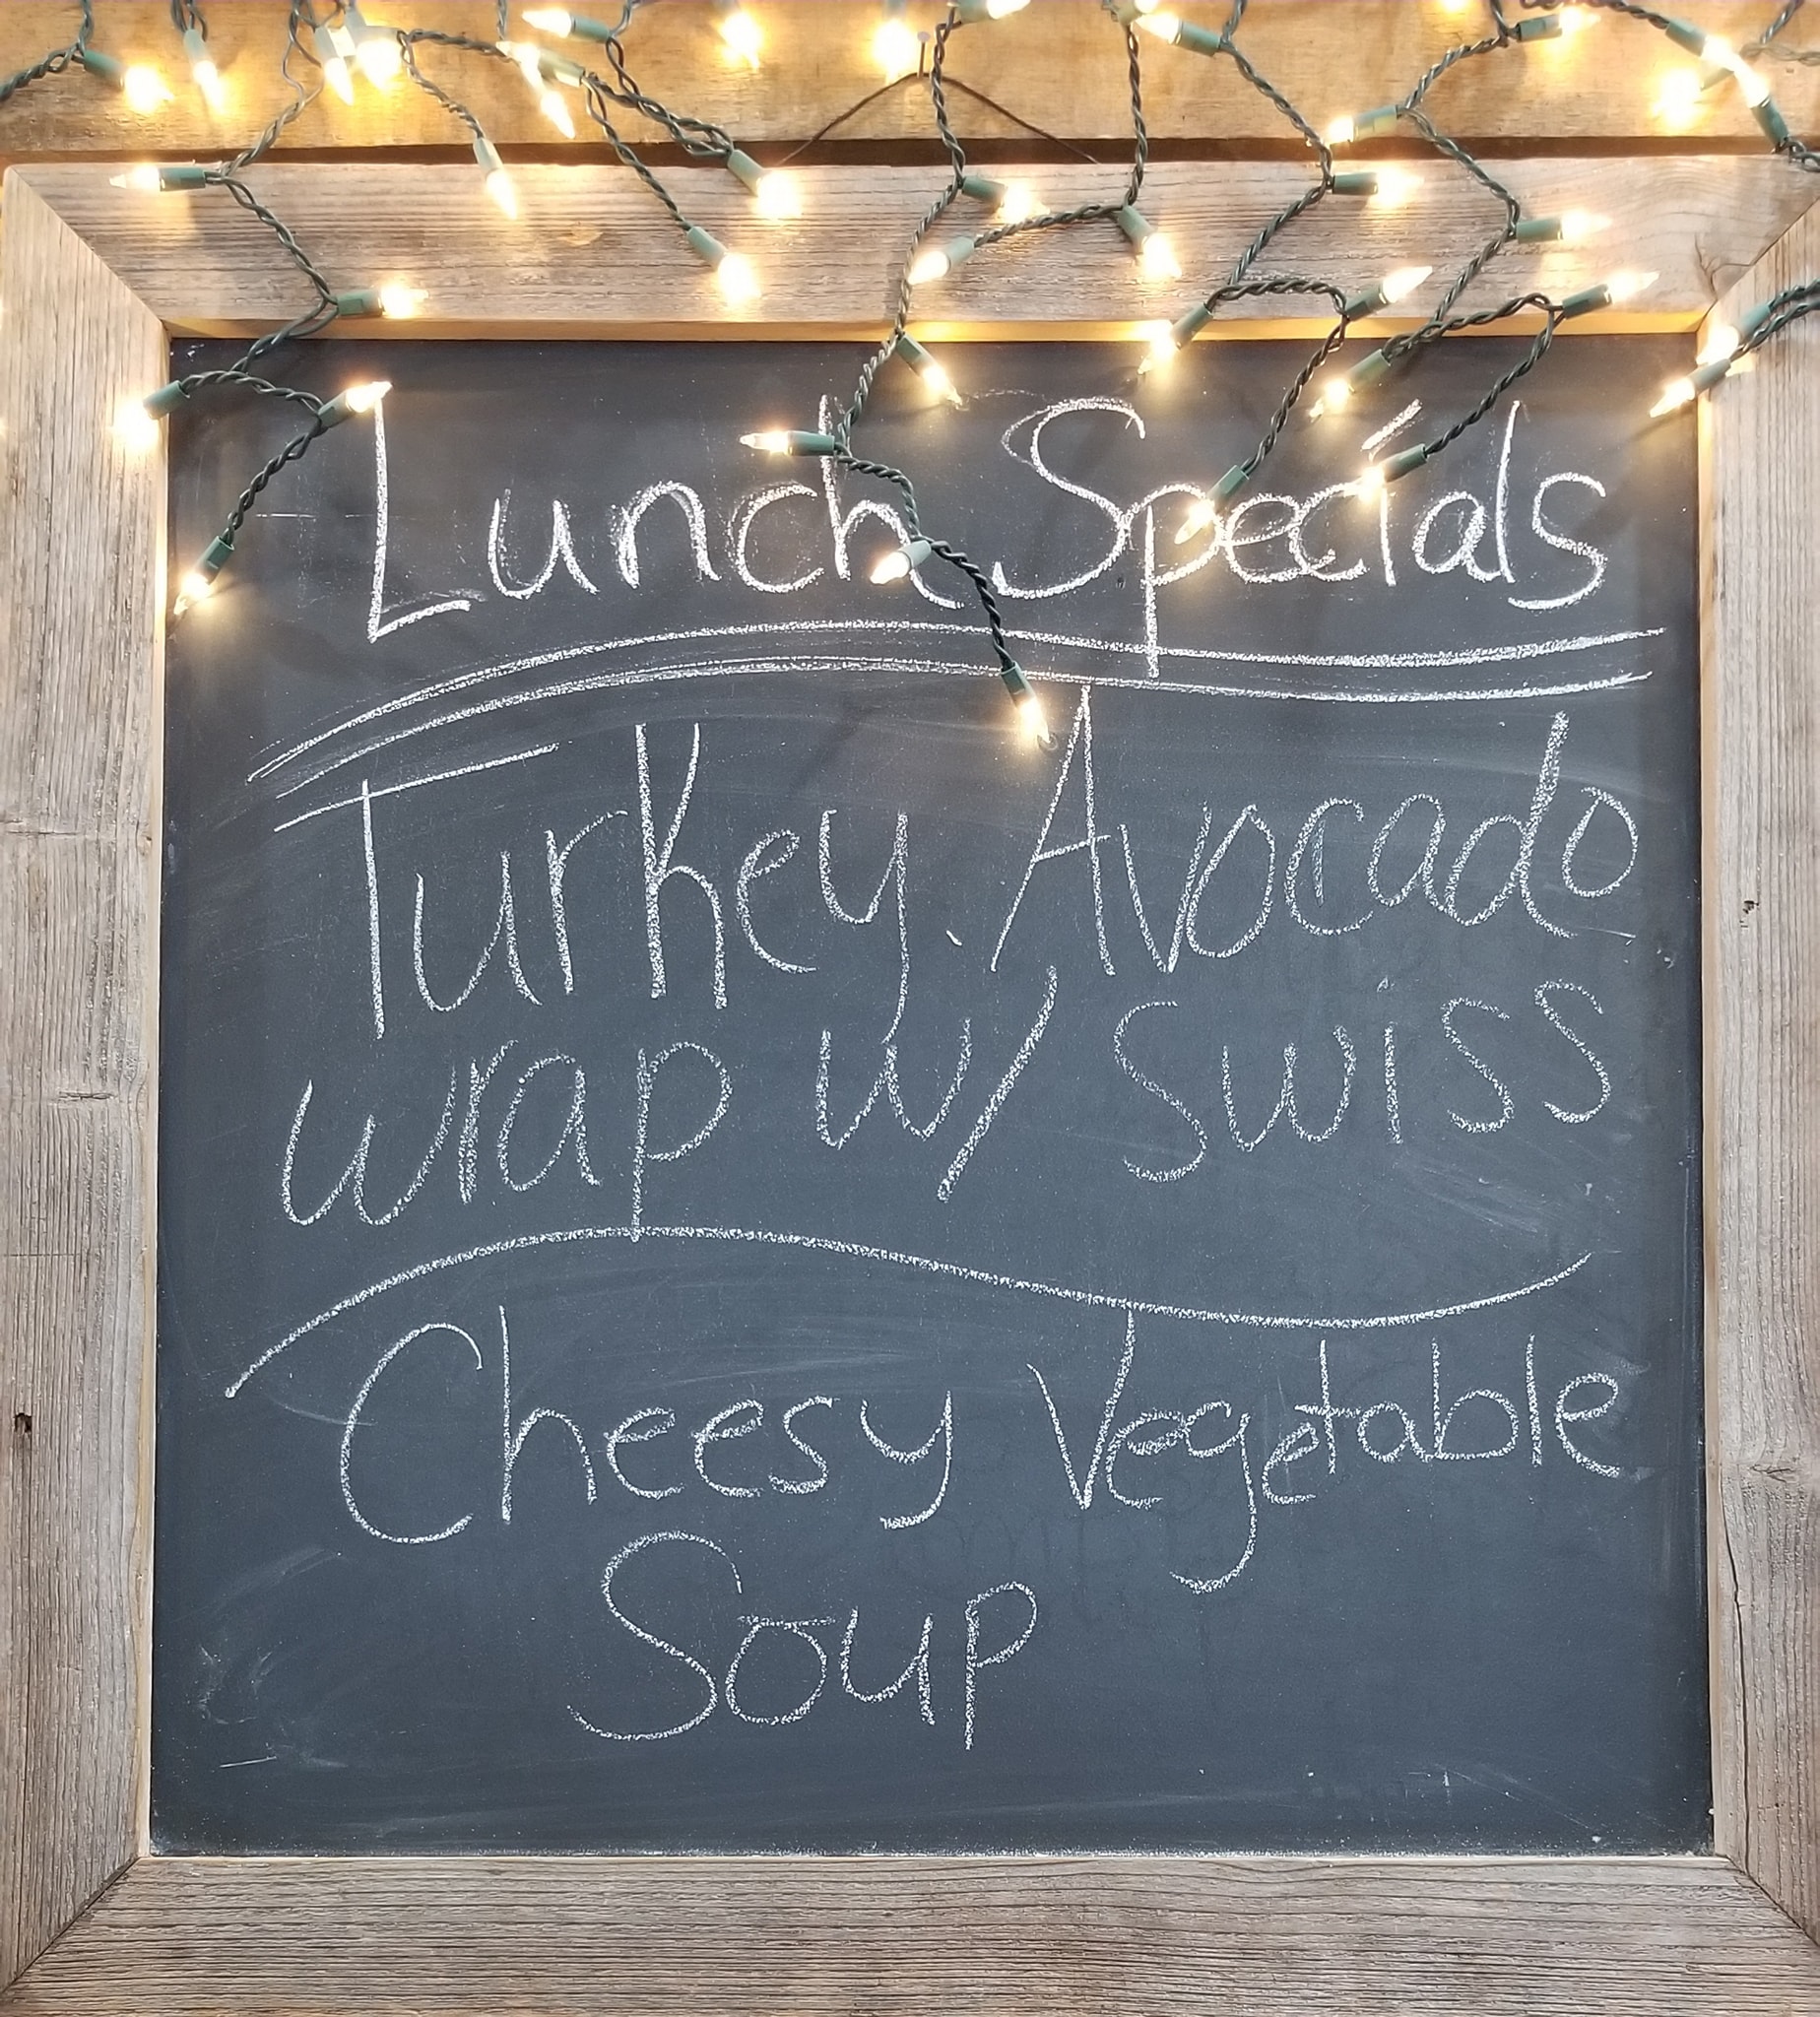 Lunch Specials
Turkey Avocado
wrap w/ swiss
Cheesy Vegetable
Soup